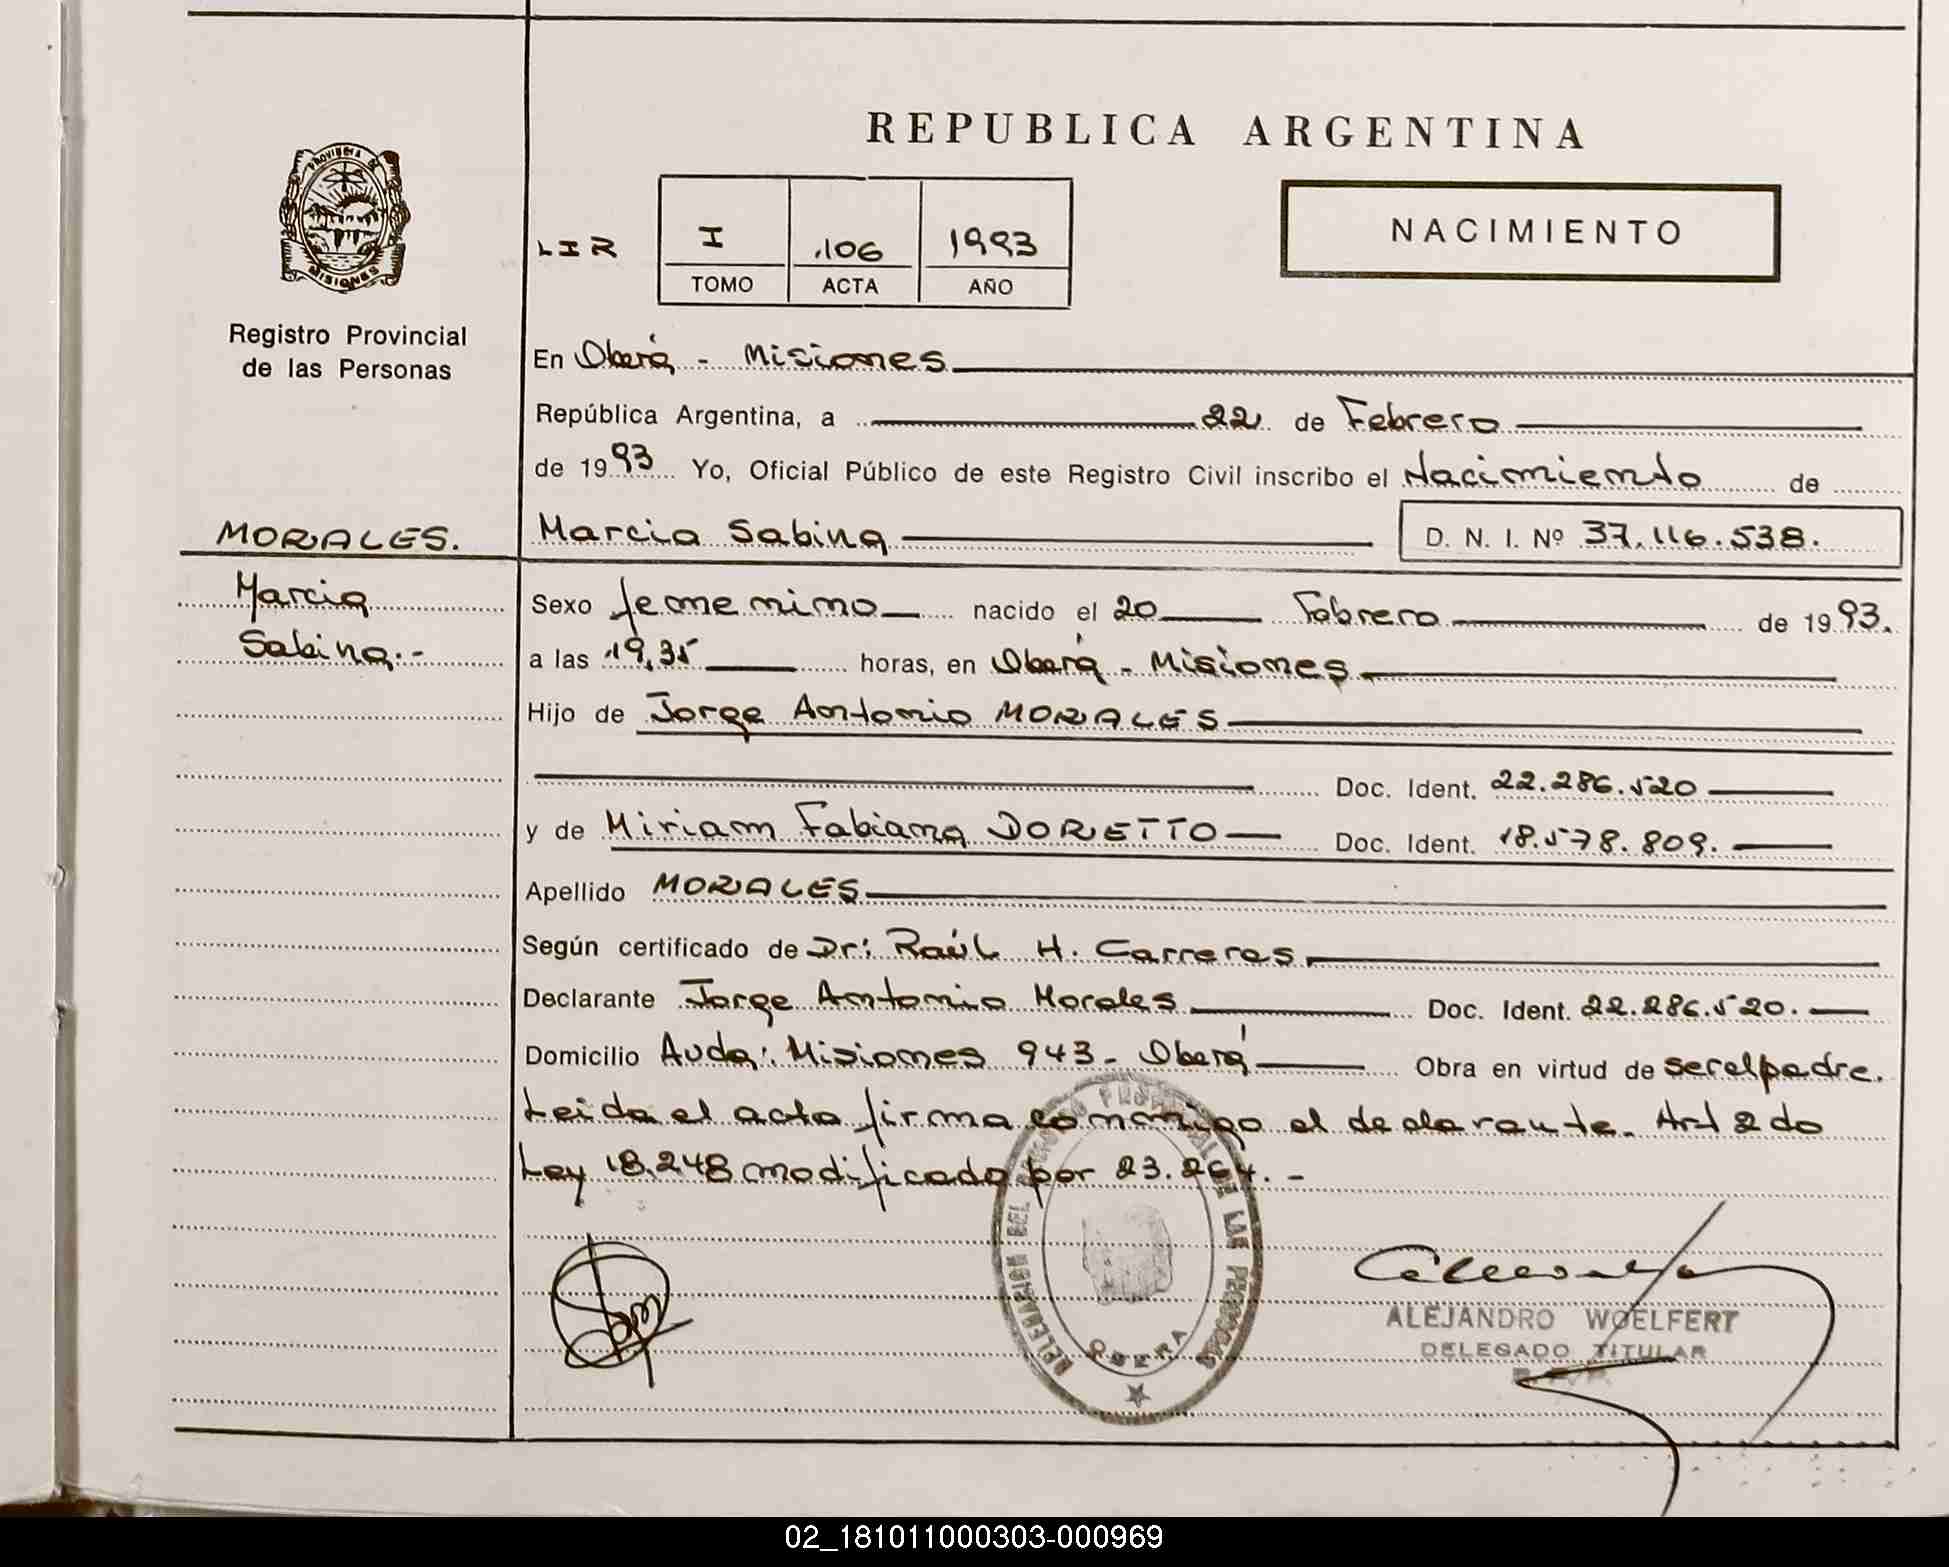 REPUBLICA ARGENTINA
PROVINCIA DE
MISIONES
Registro Provincial
de las Personas
LIR I .106 1993
TOMO ACTA AÑO
NACIMIENTO
En Oberá - Misiones
República Argentina, a 22 de Febrero
de 1993 Yo, Oficial Público de este Registro Civil inscribo el Nacimiento de
MORALES.
Marcia Sabina D. N. I. Nº 37.116.538.
Marcia
Sabina.-
Sexo femenino nacido el 20 Febrero de 1993.
a las 19,35 horas, en Oberá - Misiones
Hijo de Jorge Antonio MORALES
Doc. Ident. 22.286.520
y de Miriam Fabiana DORETTO Doc. Ident. 18.578.809.
Apellido MORALES
Según certificado de Dr: Raúl H. Carreras
Declarante Jorge Antonio Morales Doc. Ident. 22.286.520.
Domicilio Avda: Misiones 943- Oberá Obra en virtud de ser el padre.
Leida el acta firma conmigo el declarante. Art 2do
Ley 18.248 modificado por 23.264.-
DELEGACION DEL REGISTRO PROVINCIAL DE LAS PERSONAS
OBERA
ALEJANDRO WOELFERT
DELEGADO TITULAR
02_181011000303-000969